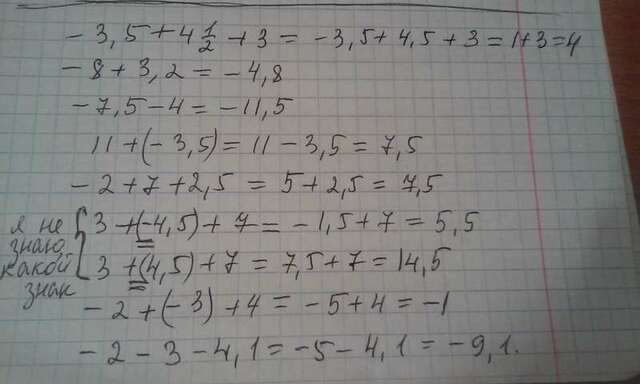 - 3,5 + 4 1/2 + 3 = - 3,5 + 4,5 + 3 = 1 + 3 = 4
- 8 + 3,2 = - 4,8
- 7,5 - 4 = - 11,5
11 + (- 3,5) = 11 - 3,5 = 7,5
- 2 + 7 + 2,5 = 5 + 2,5 = 7,5
я не знаю какой знак
3 + (-4,5) + 7 = - 1,5 + 7 = 5,5
3 + (4,5) + 7 = 7,5 + 7 = 14,5
- 2 + (- 3) + 4 = - 5 + 4 = - 1
- 2 - 3 - 4,1 = - 5 - 4,1 = - 9,1.